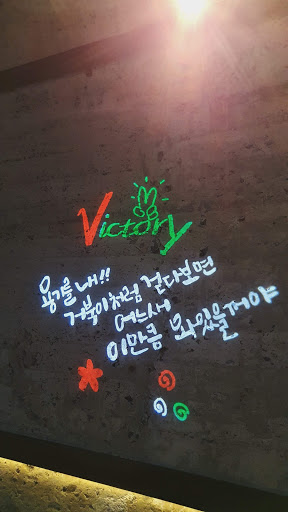 Victory
용기를 내!!
거북이처럼 걷다보면
어느새
이만큼 와있을거야